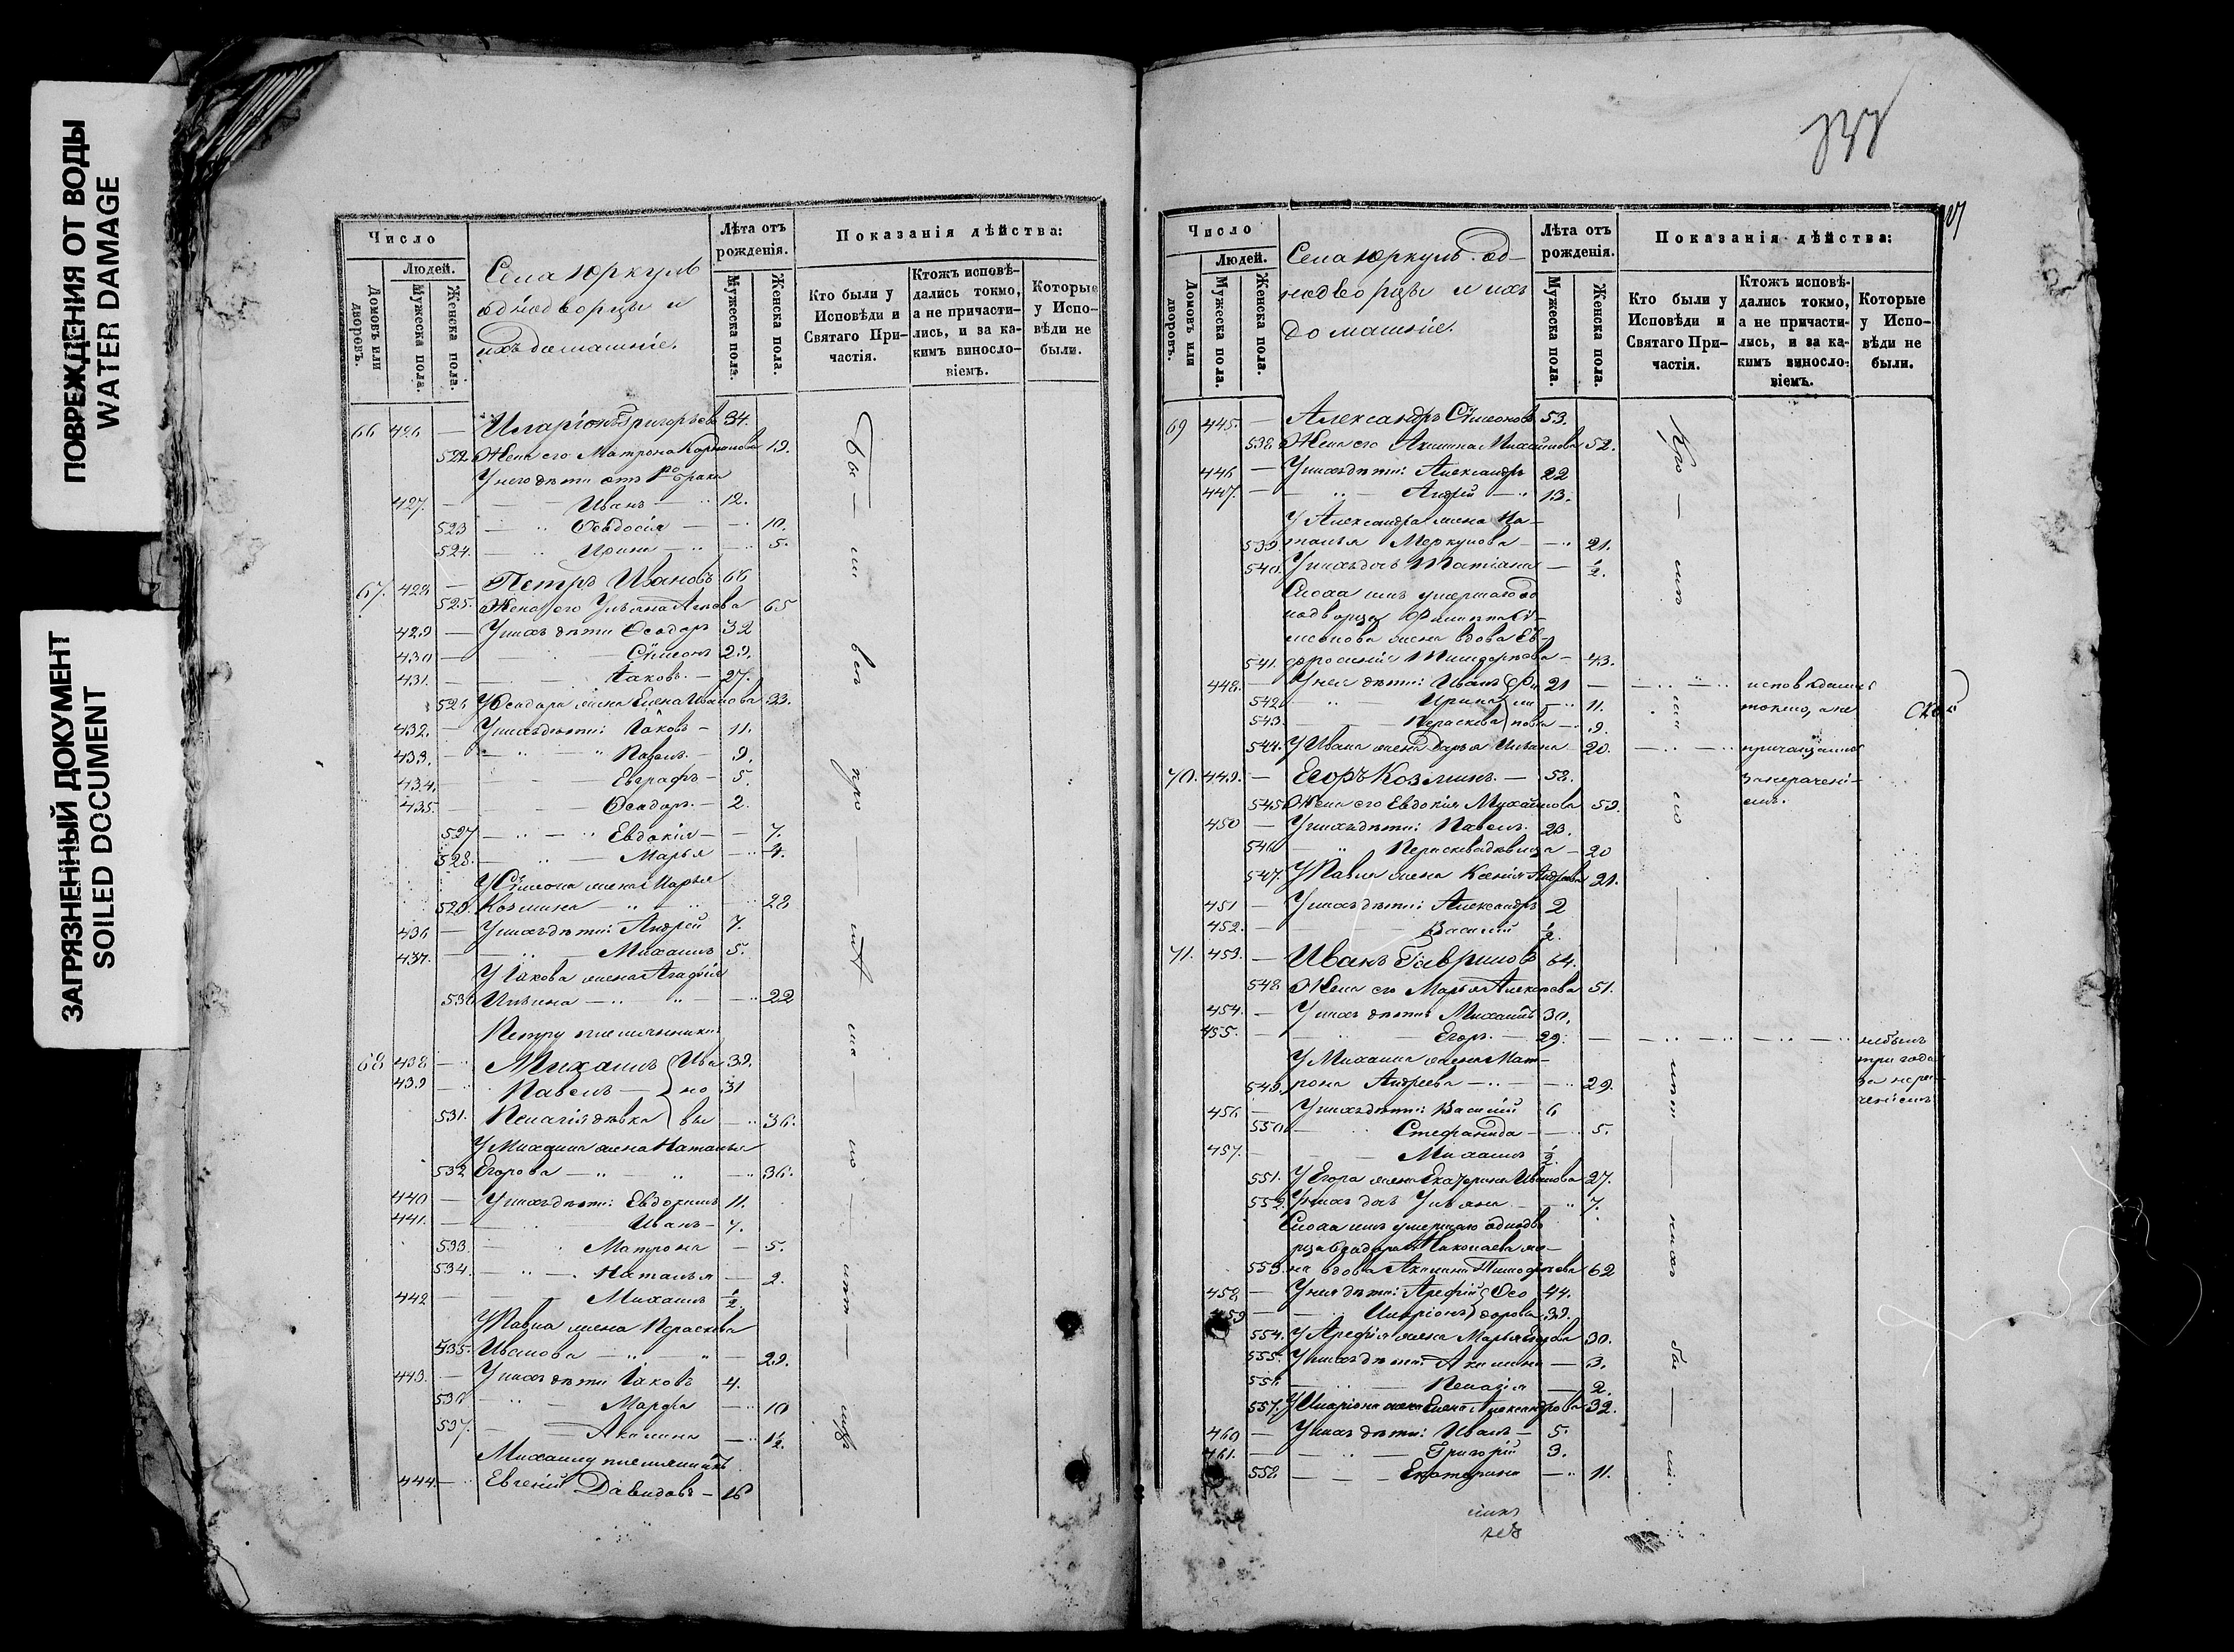 ПОВРЕЖДЕНИЯ ОТ ВОДЫ
WATER DAMAGE
ЗАГРЯЗНЕННЫЙ ДОКУМЕНТ
SOILED DOCUMENT
Число
Людей.
Домовъ или дворовъ.
Мужеска пола.
Женска пола.
Села Юркуль
однодворцы и
ихъ домашніе.
Лѣта отъ
рожденія.
Мужеска пола.
Женска пола.
Показанія дѣйства:
Кто были у
Исповѣди и
Святаго При-
частія.
Ктожъ исповѣ-
дались токмо,
а не причасти-
лись, и за ка-
кимъ виносло-
віемъ.
Которые
у Испо-
вѣди не
были.
66 426 — Иларіонъ Григорьевъ 34.
522. Жена его Матрона 19.
У него дѣти отъ 1го брака
427. — Иванъ — 12.
523 — Ѳеодосія — 10.
524. — Ирина — 5.
67. 428. — Петръ Ивановъ 66
525. Жена его Ульяна 65
429 — У нихъ дѣти Ѳеодоръ 32
430 — Сѵмеонъ 29.
431. — Іаковъ. — 27.
526 У Ѳеодора жена Елена Иванова 33.
432. — У нихъ дѣти: Іаковъ — 11.
433. — Павелъ. — 9.
434. — Евграфъ — 5.
435 — Ѳеодоръ. — 2.
527 — Евдокія — 7.
528. — Марья — 4.
У Сѵмеона жена Марья
529. Козмина — 28
436 — У нихъ дѣти: Андрей 7.
437. — Михаилъ 5.
У Іакова жена Агафія
530 Ильина — 22
Петру племянники
68 438 — Михаилъ Ива 39.
439 — Павелъ — но 31
531. Пелагія дѣвка вы — 36.
У Михаила жена Наталья
532 Егорова — 36.
440 — У нихъ дѣти: Евдокимъ 11.
441. — Иванъ — 7.
533. — Матрона — 5.
534. — Наталья — 2.
442 — Михаилъ ½.
У Павла жена Параскева
535. Иванова — 29.
443. — У нихъ дѣти Іаковъ 4.
536 — Марфа — 10
537. — Акилина — 1½.
Михаилу племянникъ
444. — Евгеній Давидовъ — 16
Бы — ли
вси
при
Число
Людей.
Домовъ или дворовъ.
Мужеска пола.
Женска пола.
Села Юркуль. од-
нодворцы и ихъ
домашніе.
Лѣта отъ
рожденія.
Мужеска пола.
Женска пола.
Показанія дѣйства:
Кто были у
Исповѣди и
Святаго При-
частія.
Ктожъ исповѣ-
дались токмо,
а не причасти-
лись, и за ка-
кимъ виносло-
віемъ.
Которые
у Испо-
вѣди не
были.
69 445. — Александръ Сѵмеоновъ 53.
538. Жена его Акилина Михайлова 52.
446 — У нихъ дѣти: Александръ 22
447. — Андрей — 13.
У Александра жена На-
539. талья Меркулова — 21.
540. У нихъ дочь Татіана — ½.
Сноха имъ умершаго од
нодворца Филиппа Сѵ-
меонова жена вдова Ев-
541. фросинія — 43.
448. — У нея дѣти: Иванъ Фи 21 исповѣдались
542 — Ирина ли — 11. токмо, а не
543. — Параскева пова — 9.
544. У Ивана жена Дарья Ильина 20. причащались
70. 449. — Егоръ Козминъ. — 58. за нерачені-
545. Жена его Евдокія Михайлова 59. емъ.
450 — У нихъ дѣти: Павелъ. 23.
546 — Параскева дѣвица — 20
547 У Павла жена Ксенія Андреева 21.
451 — У нихъ дѣти: Александръ 2
452. — Василій ½.
71. 453. — Иванъ Гавриловъ 64.
548. Жена его Марья Алексѣева 51.
454. — У нихъ дѣти Михаилъ 30.
455. — Егоръ. — 29. не былъ
У Михаила жена Мат- три года
549. рона Андреева — 29. за нера
456 — У нихъ дѣти: Василій 6 ченіемъ
550. — Стефанида — 5.
457. — Михаилъ ½.
551. У Егора жена Екатерина Иванова 27.
552. У нихъ дочь Ульяна — 7.
Сноха имъ умершаго однодво
рца Ѳеодора Николаева же-
553. на вдова Акилина Тимофеева 62
458. — У нея дѣти: Арефій Ѳео 44.
459 — Иларіонъ дорова 39.
554. У Арефія жена Марья 30.
555. У нихъ дѣти: Акилина — 3.
556. — Пелагія — 2.
557. У Иларіона жена Елена Александрова 32.
460 — У нихъ дѣти: Иванъ — 5.
461. — Григорій 3.
558 — Екатерина — 11.